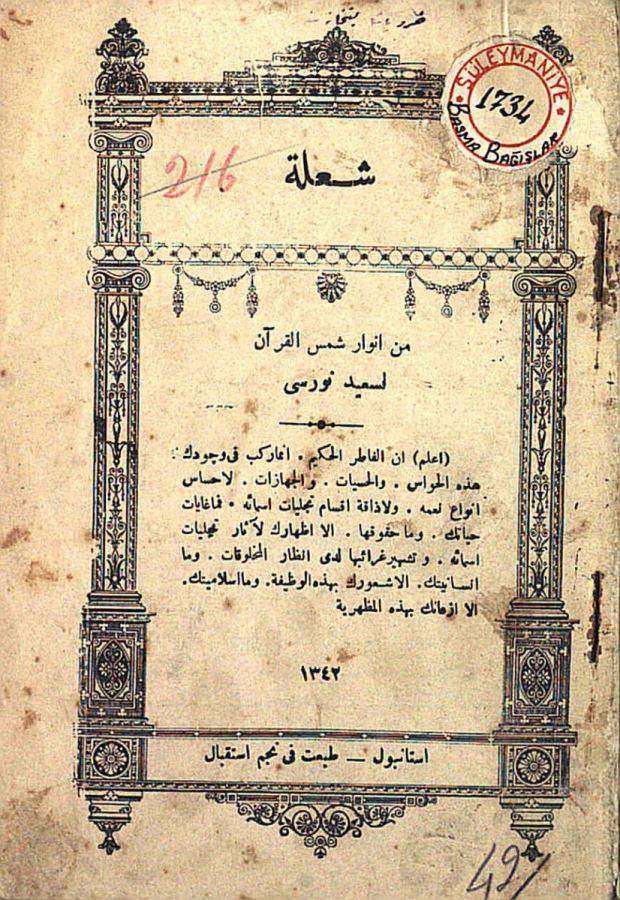 SÜLEYMANİYE
1734
BASMA BAĞIŞLAR
216
شعلة
من انوار شمس القرآن
لسعيد نورسى
(اعلم) ان الفاطر الحكيم . انماركب فى وجودك
هذه الحواس . والحسيات . والجهازات . لاحساس
انواع نعمه . ولاذاقة اقسام تجليات اسمائه . فماغايات
حياتك . وماحقوقها . الا اظهارك لآثار تجليات
اسمائه . وتشهير غرائبها لدى انظار المخلوقات . وما
انسانيتك . الاشعورك بهذه الوظيفة . ومااسلاميتك .
الا اذعانك بهذه المظهرية
١٣٤٢
استانبول — طبعت فى نجم استقبال